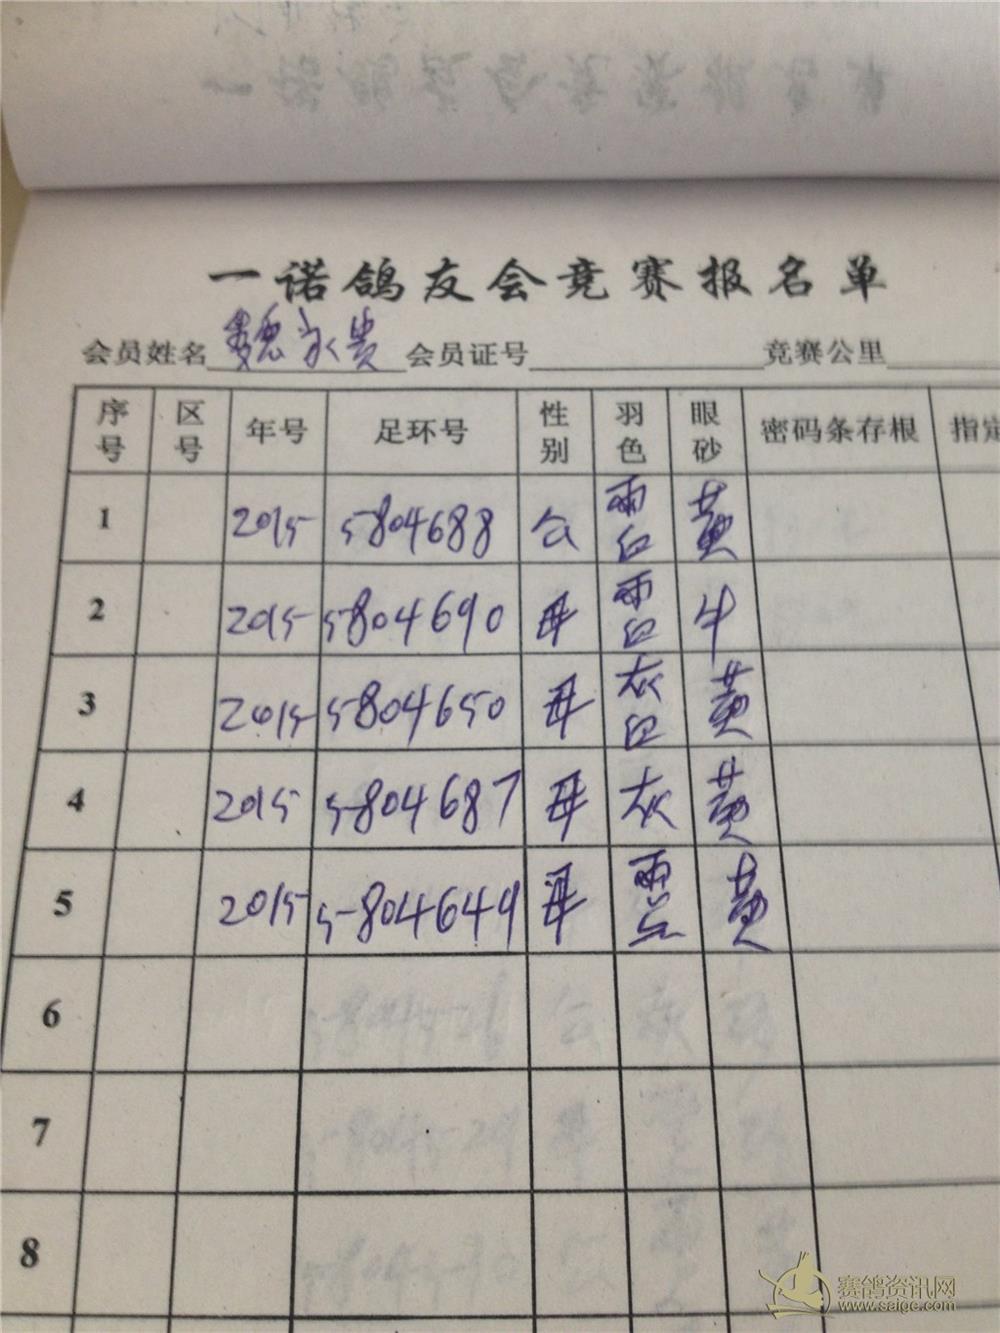 一诺鸽友会竞赛报名单
会员姓名 魏永贵 会员证号 竞赛公里
序号 区号 年号 足环号 性别 羽色 眼砂 密码条存根 指定
1 2015 5804688 公 雨白 黄
2 2015 5804690 母 雨白 牛
3 2015 5804650 母 灰白 黄
4 2015 5804687 母 灰 黄
5 2015 5-804649 母 雨点 黄
6
7
8
赛鸽资讯网
www.saige.com